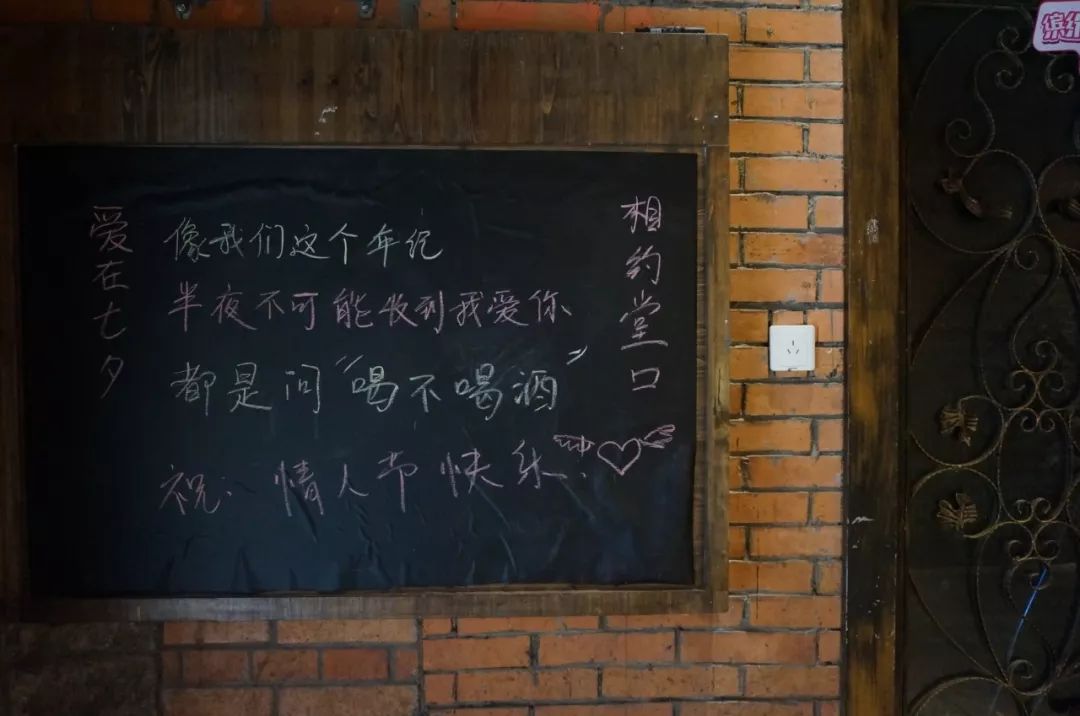 爱在七夕
像我们这个年纪
半夜不可能收到我爱你
都是问“喝不喝酒”
祝:情人节快乐!
相约堂口
缤纷